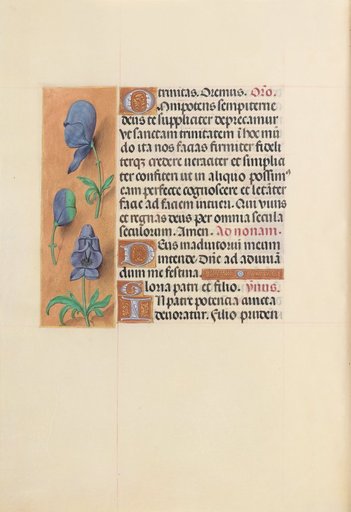 O trinitas. Oremus. Oro.
Omnipotens sempiterne
deus te suppliciter deprecamur
vt sanctam trinitatem i hoc mū
do ita nos facias firmiter fideli
terqz credere ueraciter et simplici
ter confiteri ut in aliquo possimꝰ
eam perfecte cognoscere et letāter
facie ad faciem intueri. Qui viuis
et regnas deus per omnia secula
seculorum. Amen. Ad nonam.
Deus in adiutoriū meum
intende. Dnē ad adiuuā
dum me festina.
Gloria patri et filio. ymnus.
In patre potencia cuncta
deuoratur. Filio pruden